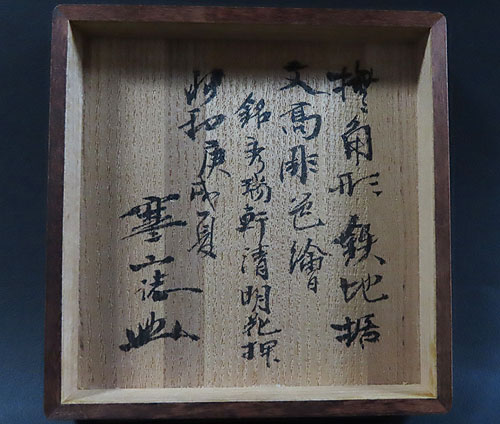 撫角形 鉄地据
文高彫色繪
銘秀瑞軒清明花押
昭和庚戌夏
寒山誌